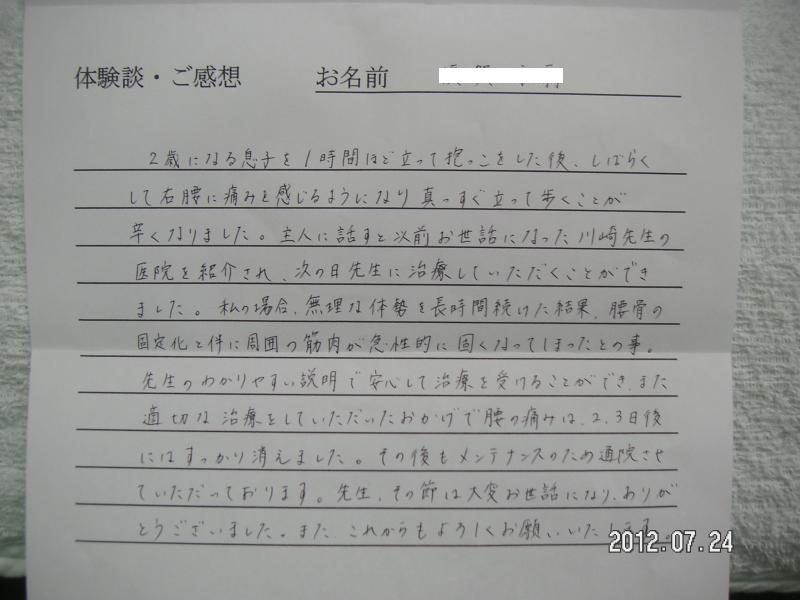 体験談・ご感想 お名前
2歳になる息子を1時間ほど立って抱っこをした後、しばらく
して右腰に痛みを感じるようになり真っすぐ立って歩くことが
辛くなりました。主人に話すと以前お世話になった川崎先生の
医院を紹介され、次の日先生に治療していただくことができ
ました。私の場合、無理な体勢を長時間続けた結果、腰骨の
固定化と伴に周囲の筋肉が急性的に固くなってしまったとの事。
先生のわかりやすい説明で安心して治療を受けることができ、また
適切な治療をしていただいたおかげで腰の痛みは、2、3日後
にはすっかり消えました。その後もメンテナンスのため通院させ
ていただっております。先生、その節は大変お世話になり、ありが
とうございました。また、これからもよろしくお願いいたします。
2012.07.24